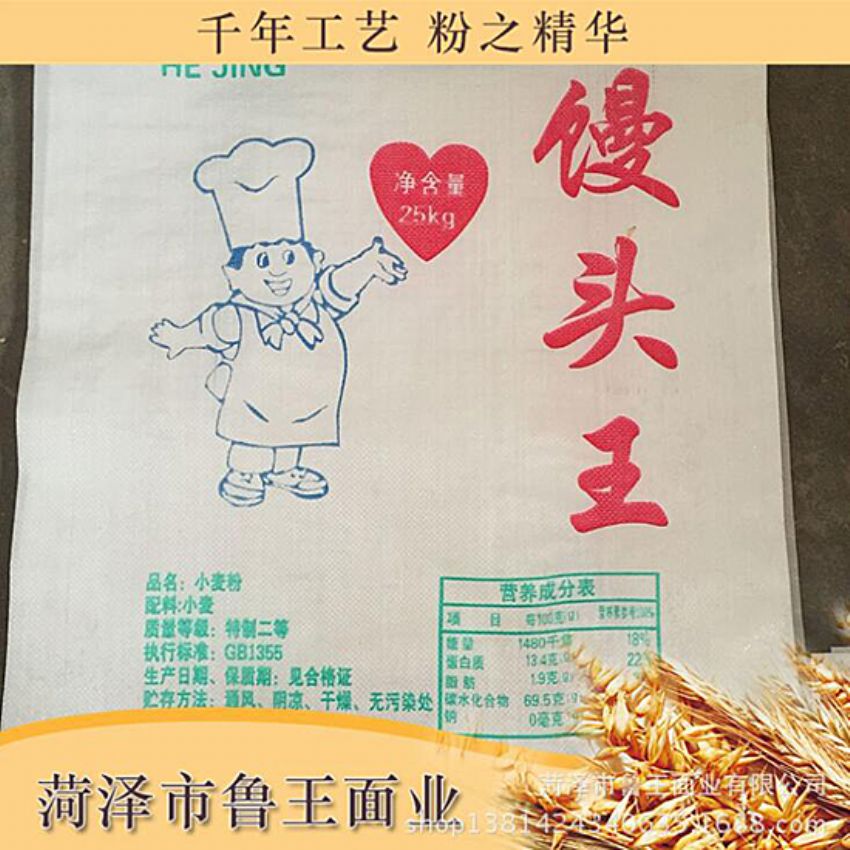 千年工艺 粉之精华
HE JING
净含量
25kg
馒头王
品名：小麦粉
配料:小麦
质量等级：特制二等
执行标准：GB1355
生产日期、保质期：见合格证
贮存方法：通风、阴凉、干燥、无污染处
营养成分表
项 目 每100克(g)
能量 1480千焦 18%
蛋白质 13.4克(g) 22
脂肪 1.9克(g)
碳水化合物 69.5克(g)
钠 0毫克
菏泽市鲁王面业
菏泽市鲁王面业有限公司